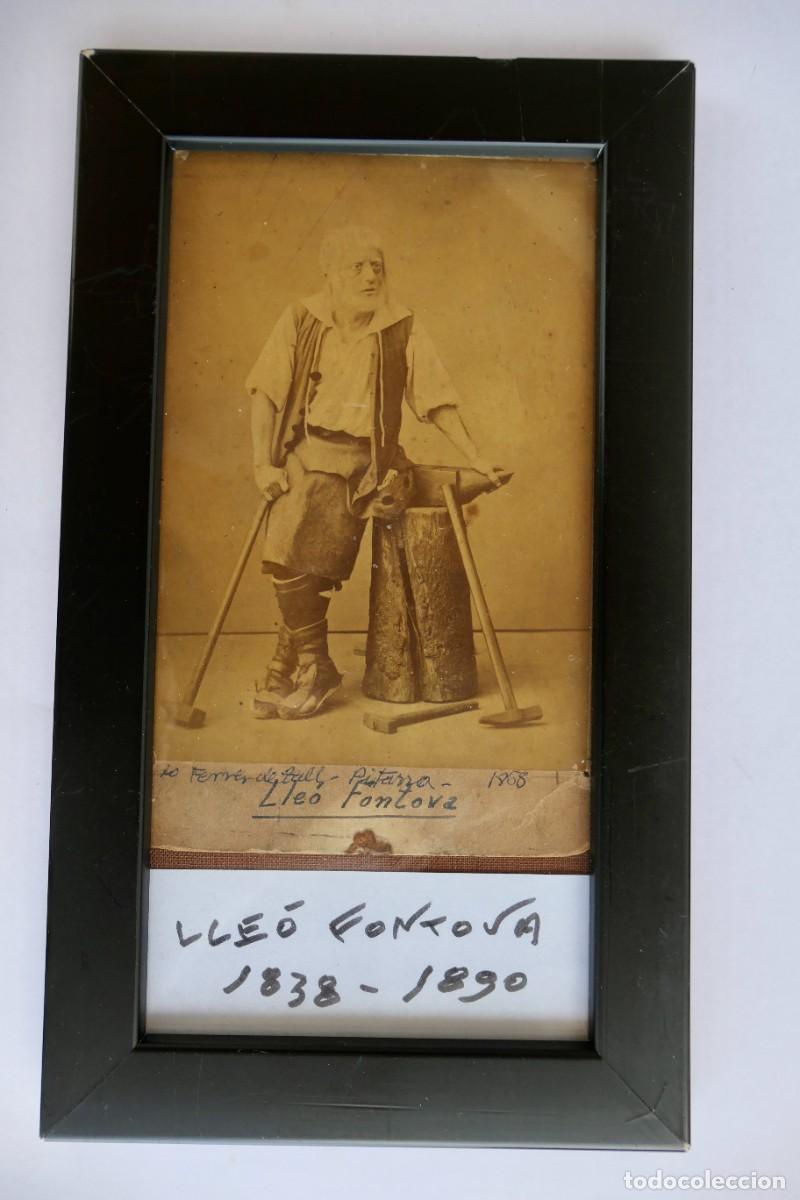 lo Ferrer de tall - Pitarra - 1868
Lleó Fontova
LLEÓ FONTOVA
1838 - 1890
todocoleccion
todocoleccion.net